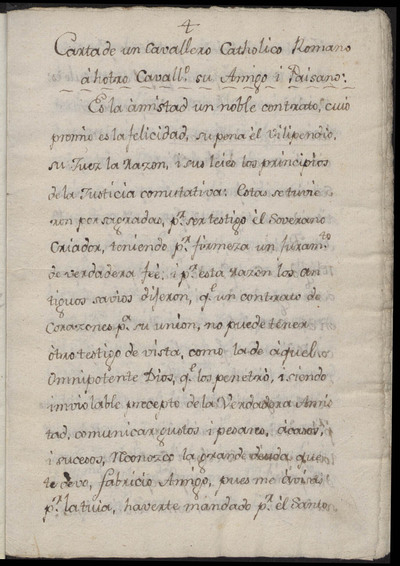 4
Carta de un Cavallero Catholico Romano
à hotro Cavall.º su Amigo i Paisano.
Es la àmistad un noble contrato, cuio
premio es la felicidad, su pena èl vilipendio,
su Juez la Razon, i sus leies los principios
de la Justicia comutativa. Estas se tuvie
ron por sagradas, p.r ser testigo èl Soverano
Criador, teniendo p.r firmeza un juram.to
de verdadera feè: i p.r esta razon los an
tiguos savios dijeron, q.e un contrato de
Corazones p.a su union, no puede tener
òtro testigo de vista, como lo de àquel
Omnipotente Dios, q.e los penetrò, i siendo
inviolable precepto de la Verdadera Amis
tad, comunicar gustos i pesares, àcasos,
i sucesos, Reconozco la grande deuda que
te devo, fabricio Amigo, pues me àvisas
p.r la tuia, haverte mandado p.r èl Santo